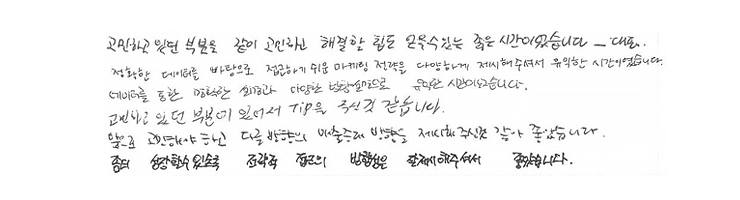 고민하고 있던 부분을 같이 고민하고 해결할 힘도 얻을수있는 좋은 시간이었습니다 — 대표.
정확한 데이터를 바탕으로 접근하기 쉬운 마케팅 전략을 다양하게 제시해주셔서 유익한 시간이었습니다.
데이터를 통한 명확한 다양한 유익한 시간이었습니다.
고민하고 있던 부분이 있어서 Tip을 주신것 같습니다.
앞으로 고민해야 하는 다음 방향의 매출증대 방향을 제시해 주신것 같아 좋았습니다.
좀더 성장할수있도록 전략적 접근의 방향성을 해주셔서 좋았습니다.